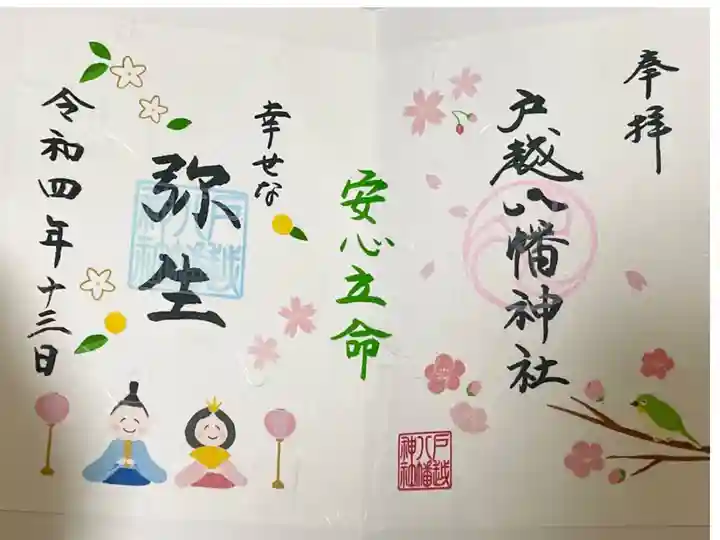 奉拝
戸越八幡神社
戸越
八幡
神社
安心立命
幸せな
弥生
戸越
八幡
神社
令和四年十三日